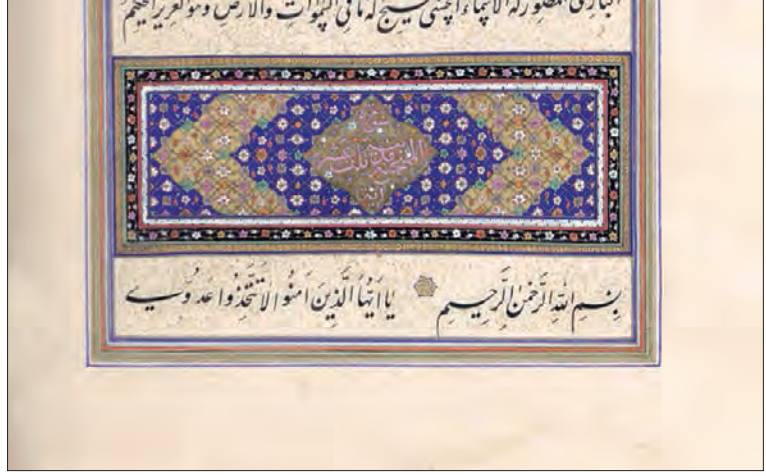 البارئ المصور له الاسماء الحسنى يسبح له ما فى السموات والارض وهو العزيز الحكيم
ثلث عشر
آية
بِسْمِ اللهِ الرَّحْمٰنِ الرَّحِيمِ يَا اَيُّهَا الَّذِينَ اٰمَنُوا لَا تَتَّخِذُوا عَدُوِّي